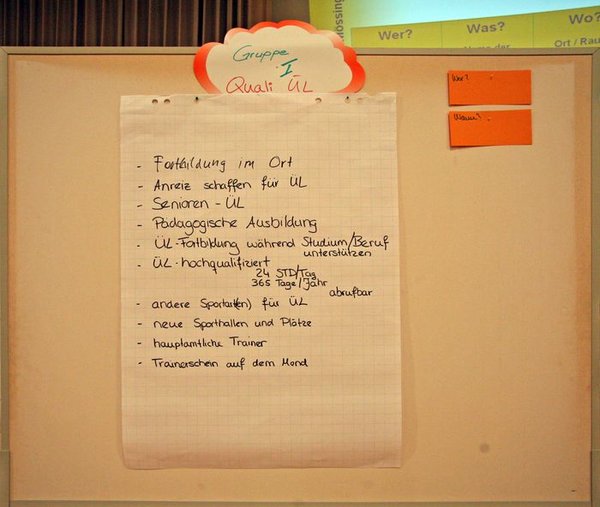 Wer?
Was?
Wo?
Ort / Rau
Gruppe
I
Quali ÜL
Wer?
Wann?
- Fortbildung im Ort
- Anreiz schaffen für ÜL
- Senioren - ÜL
- Pädagogische Ausbildung
- ÜL-Fortbildung während Studium/Beruf
unterstützen
- ÜL-hochqualifiziert
24 STD/Tag
365 Tage/Jahr
abrufbar
- andere Sportart(en) für ÜL
- neue Sporthallen und Plätze
- hauptamtliche Trainer
- Trainerschein auf dem Mond